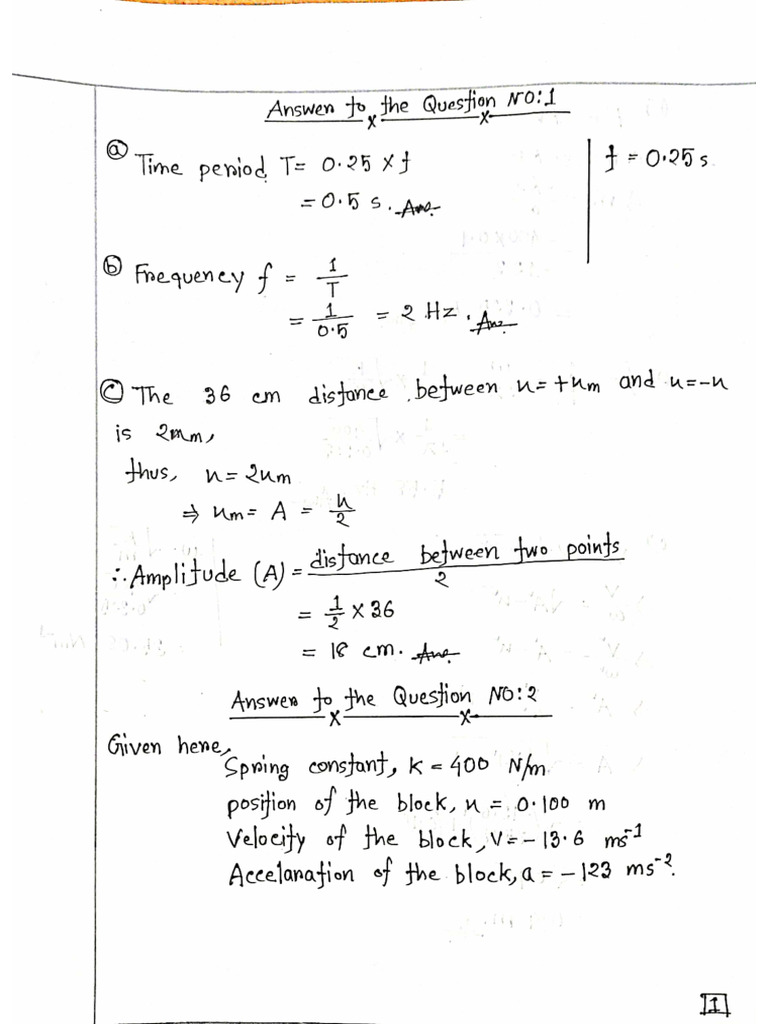 Answer to the Question NO:1
ⓐ Time period, T= 0.25 × f
f = 0.25 s
= 0.5 s. Ans.
ⓑ Frequency f = 1/T
= 1/0.5 = 2 Hz. Ans.
ⓒ The 36 cm distance between x=+xm and x=-x
is 2xm,
thus, x= 2xm
⇒ xm= A = x/2
∴ Amplitude (A) = distance between two points/2
= 1/2 × 36
= 18 cm. Ans.
Answer to the Question NO:2
Given here,
Spring constant, K = 400 N/m
position of the block, x = 0.100 m
Velocity of the block, V = - 13.6 ms⁻¹
Accelaration of the block, a = - 123 ms⁻².
1